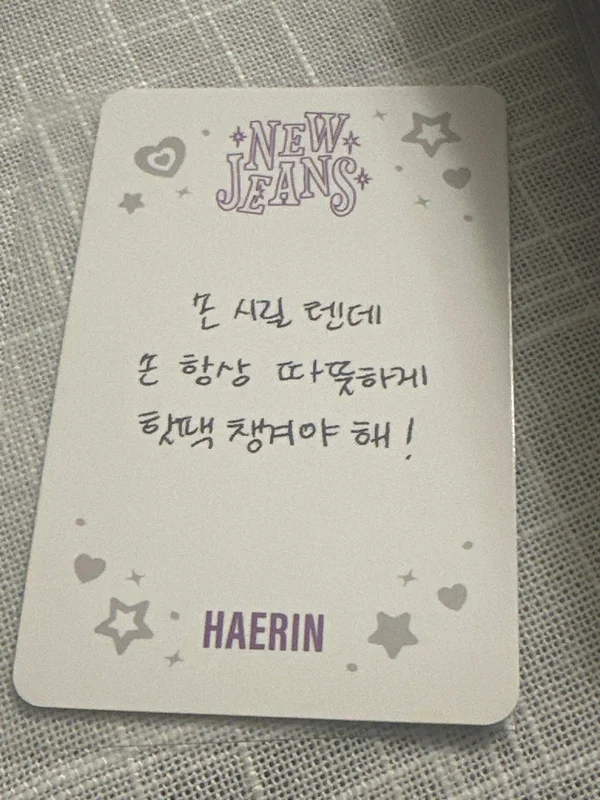 NEW
JEANS
손 시릴 텐데
손 항상 따뜻하게
핫팩 챙겨야 해!
HAERIN